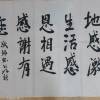 地感激
生活感
恩相遇
感謝有